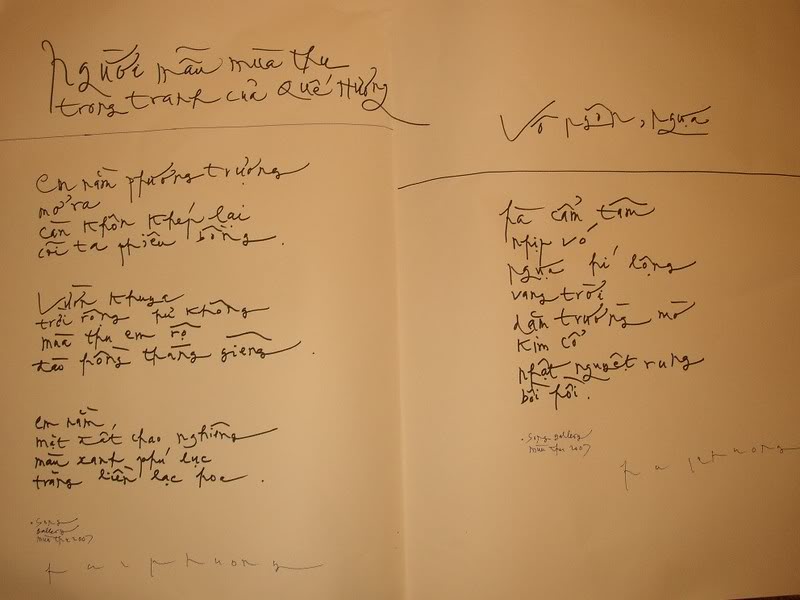 Người mẫu mùa thu
trong tranh của Quế Hương
em nằm phương trượng
mở ra
càn khôn khép lại
cõi ta phiêu bồng .
Vườn khuya
trời rộng hư không
mùa thu em rộ
đào hồng tháng giêng .
em nằm
mặt đất chao nghiêng
màu xanh phú lục
trăng liền lạc hoa .
. Song
Gallery
mùa thu 2007
Vô ngôn, ngựa
hà cẩm tâm
nhịp vó
ngựa hí lộng
vang trời
dặm trường mơ
kim cổ
nhật nguyệt rung
bồi hồi .
. Song Gallery
mùa thu 2007